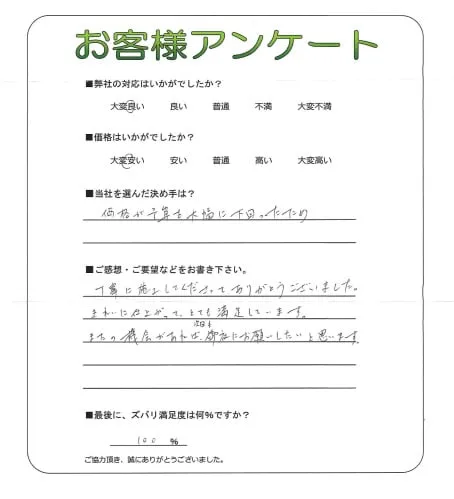 お客様アンケート
■弊社の対応はいかがでしたか?
大変良い 良い 普通 不満 大変不満
■価格はいかがでしたか?
大変安い 安い 普通 高い 大変高い
■当社を選んだ決め手は?
価格が予算を大幅に下回ったため
■ご感想・ご要望などをお書き下さい。
丁寧に施工してくださってありがとうございました。
きれいに仕上がって、とても満足しています。
次回も
またの機会があれば、御社にお願いしたいと思います。
■最後に、ズバリ満足度は何%ですか?
100 %
ご協力頂き、誠にありがとうございました。